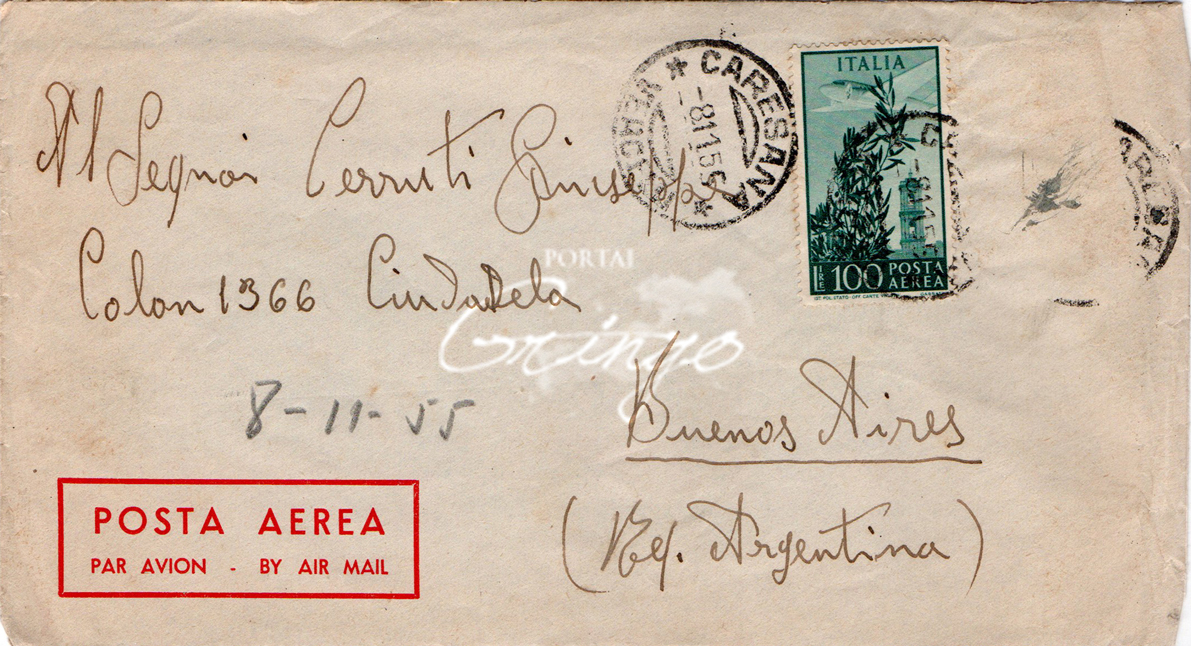 Al Segnor Cerruti Giuseppe
Colon 1366 Ciudadela
Buenos Aires
(Rep. Argentina)
8-11-55
POSTA AEREA
PAR AVION - BY AIR MAIL
CARESANA * *
-8.11.55
ITALIA
LIRE 100 POSTA AEREA
PORTAL
Gringo